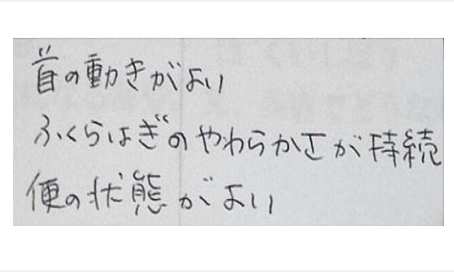 首の動きがよい
ふくらはぎのやわらかさが持続
便の状態がよい